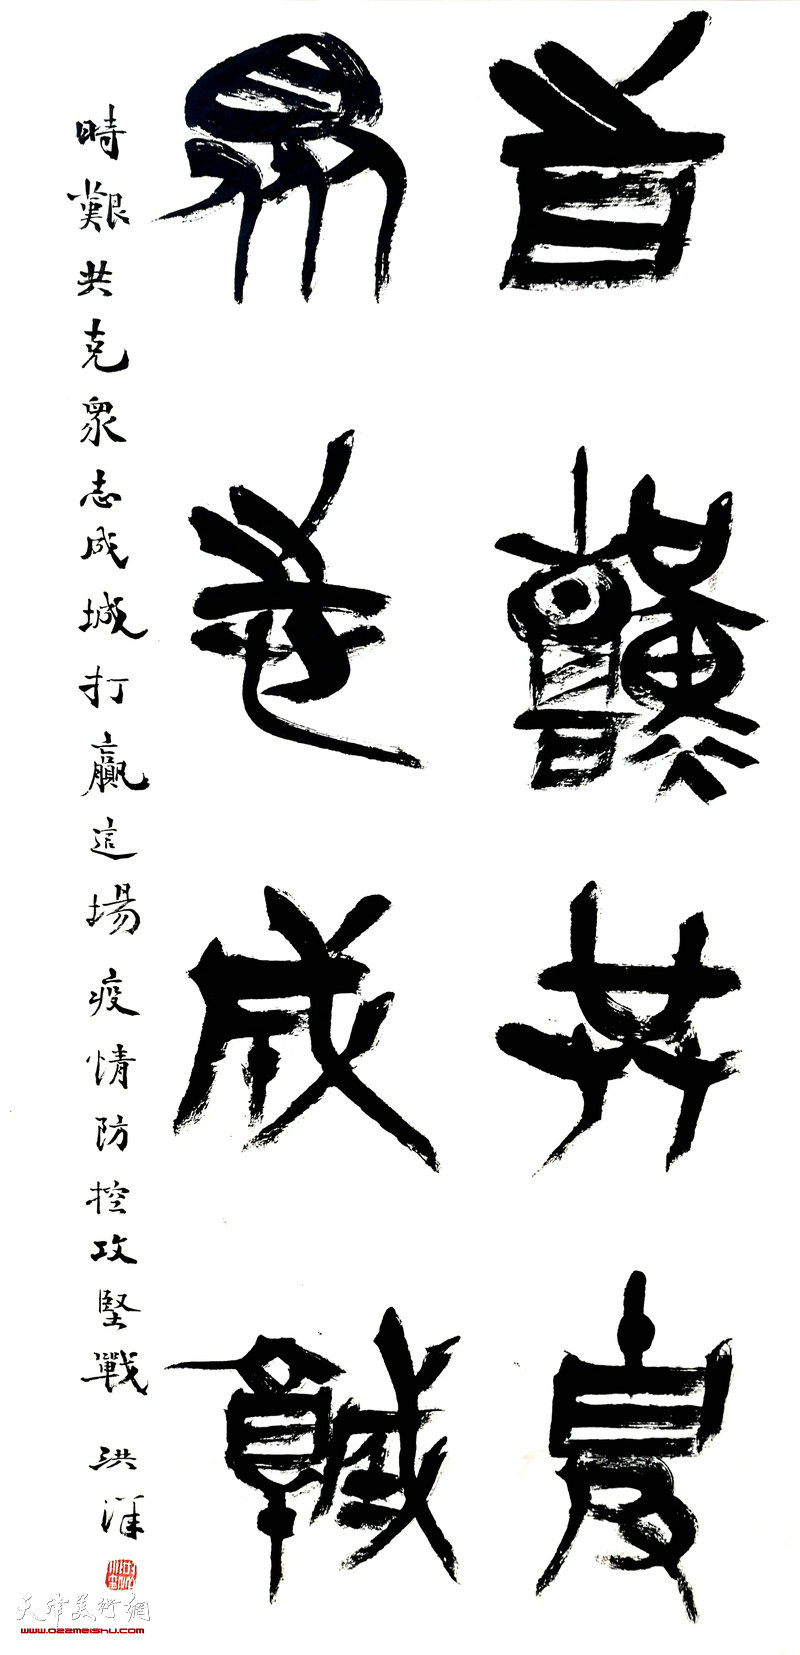 旹艱共克
眾志成城
時艱共克眾志成城打贏這場疫情防控攻堅戰 洪澤
天津美術網
www.022meishu.com